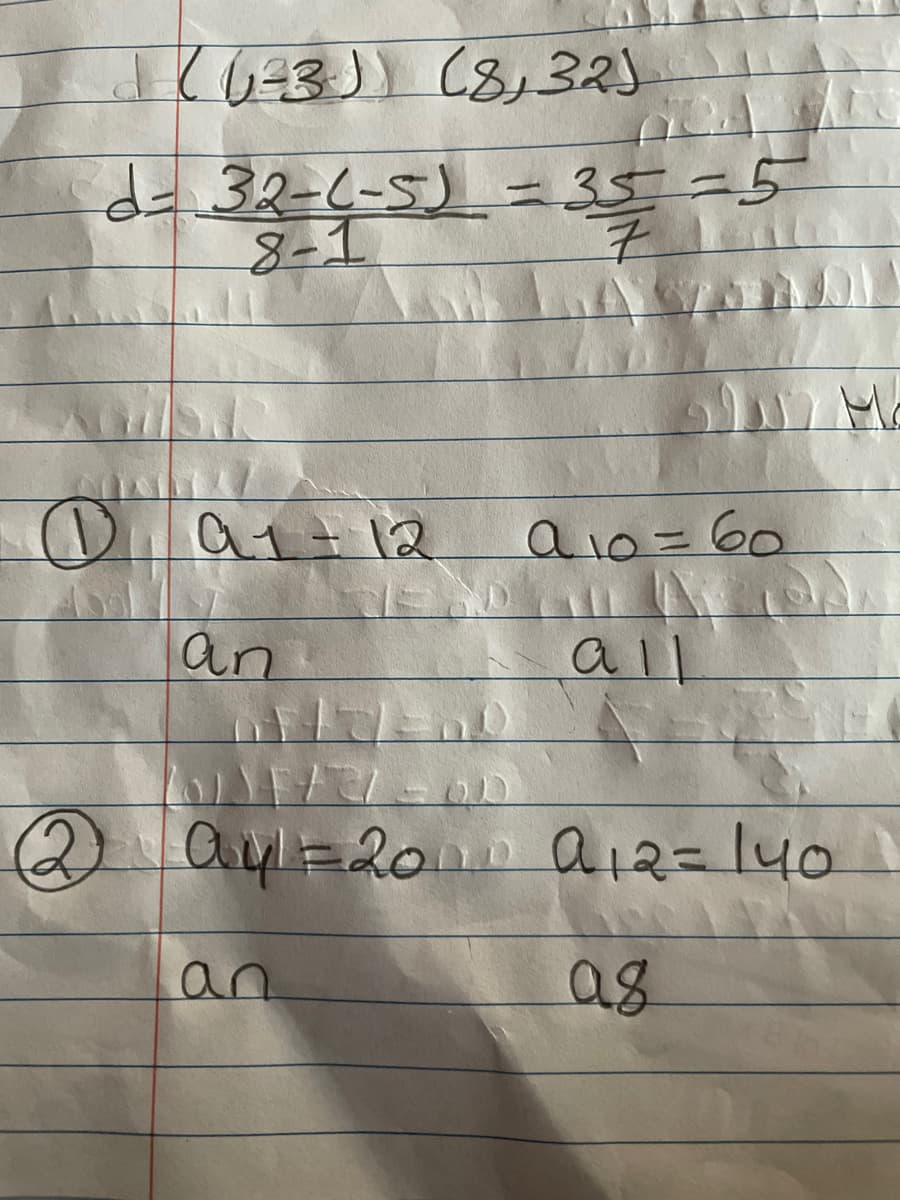 d (1,-3) (8,32)
d= 32-(-5) = 35 = 5
8-1 7
① a1 = 12 a10 = 60
an a11
② a4 = 20 a12 = 140
an a8